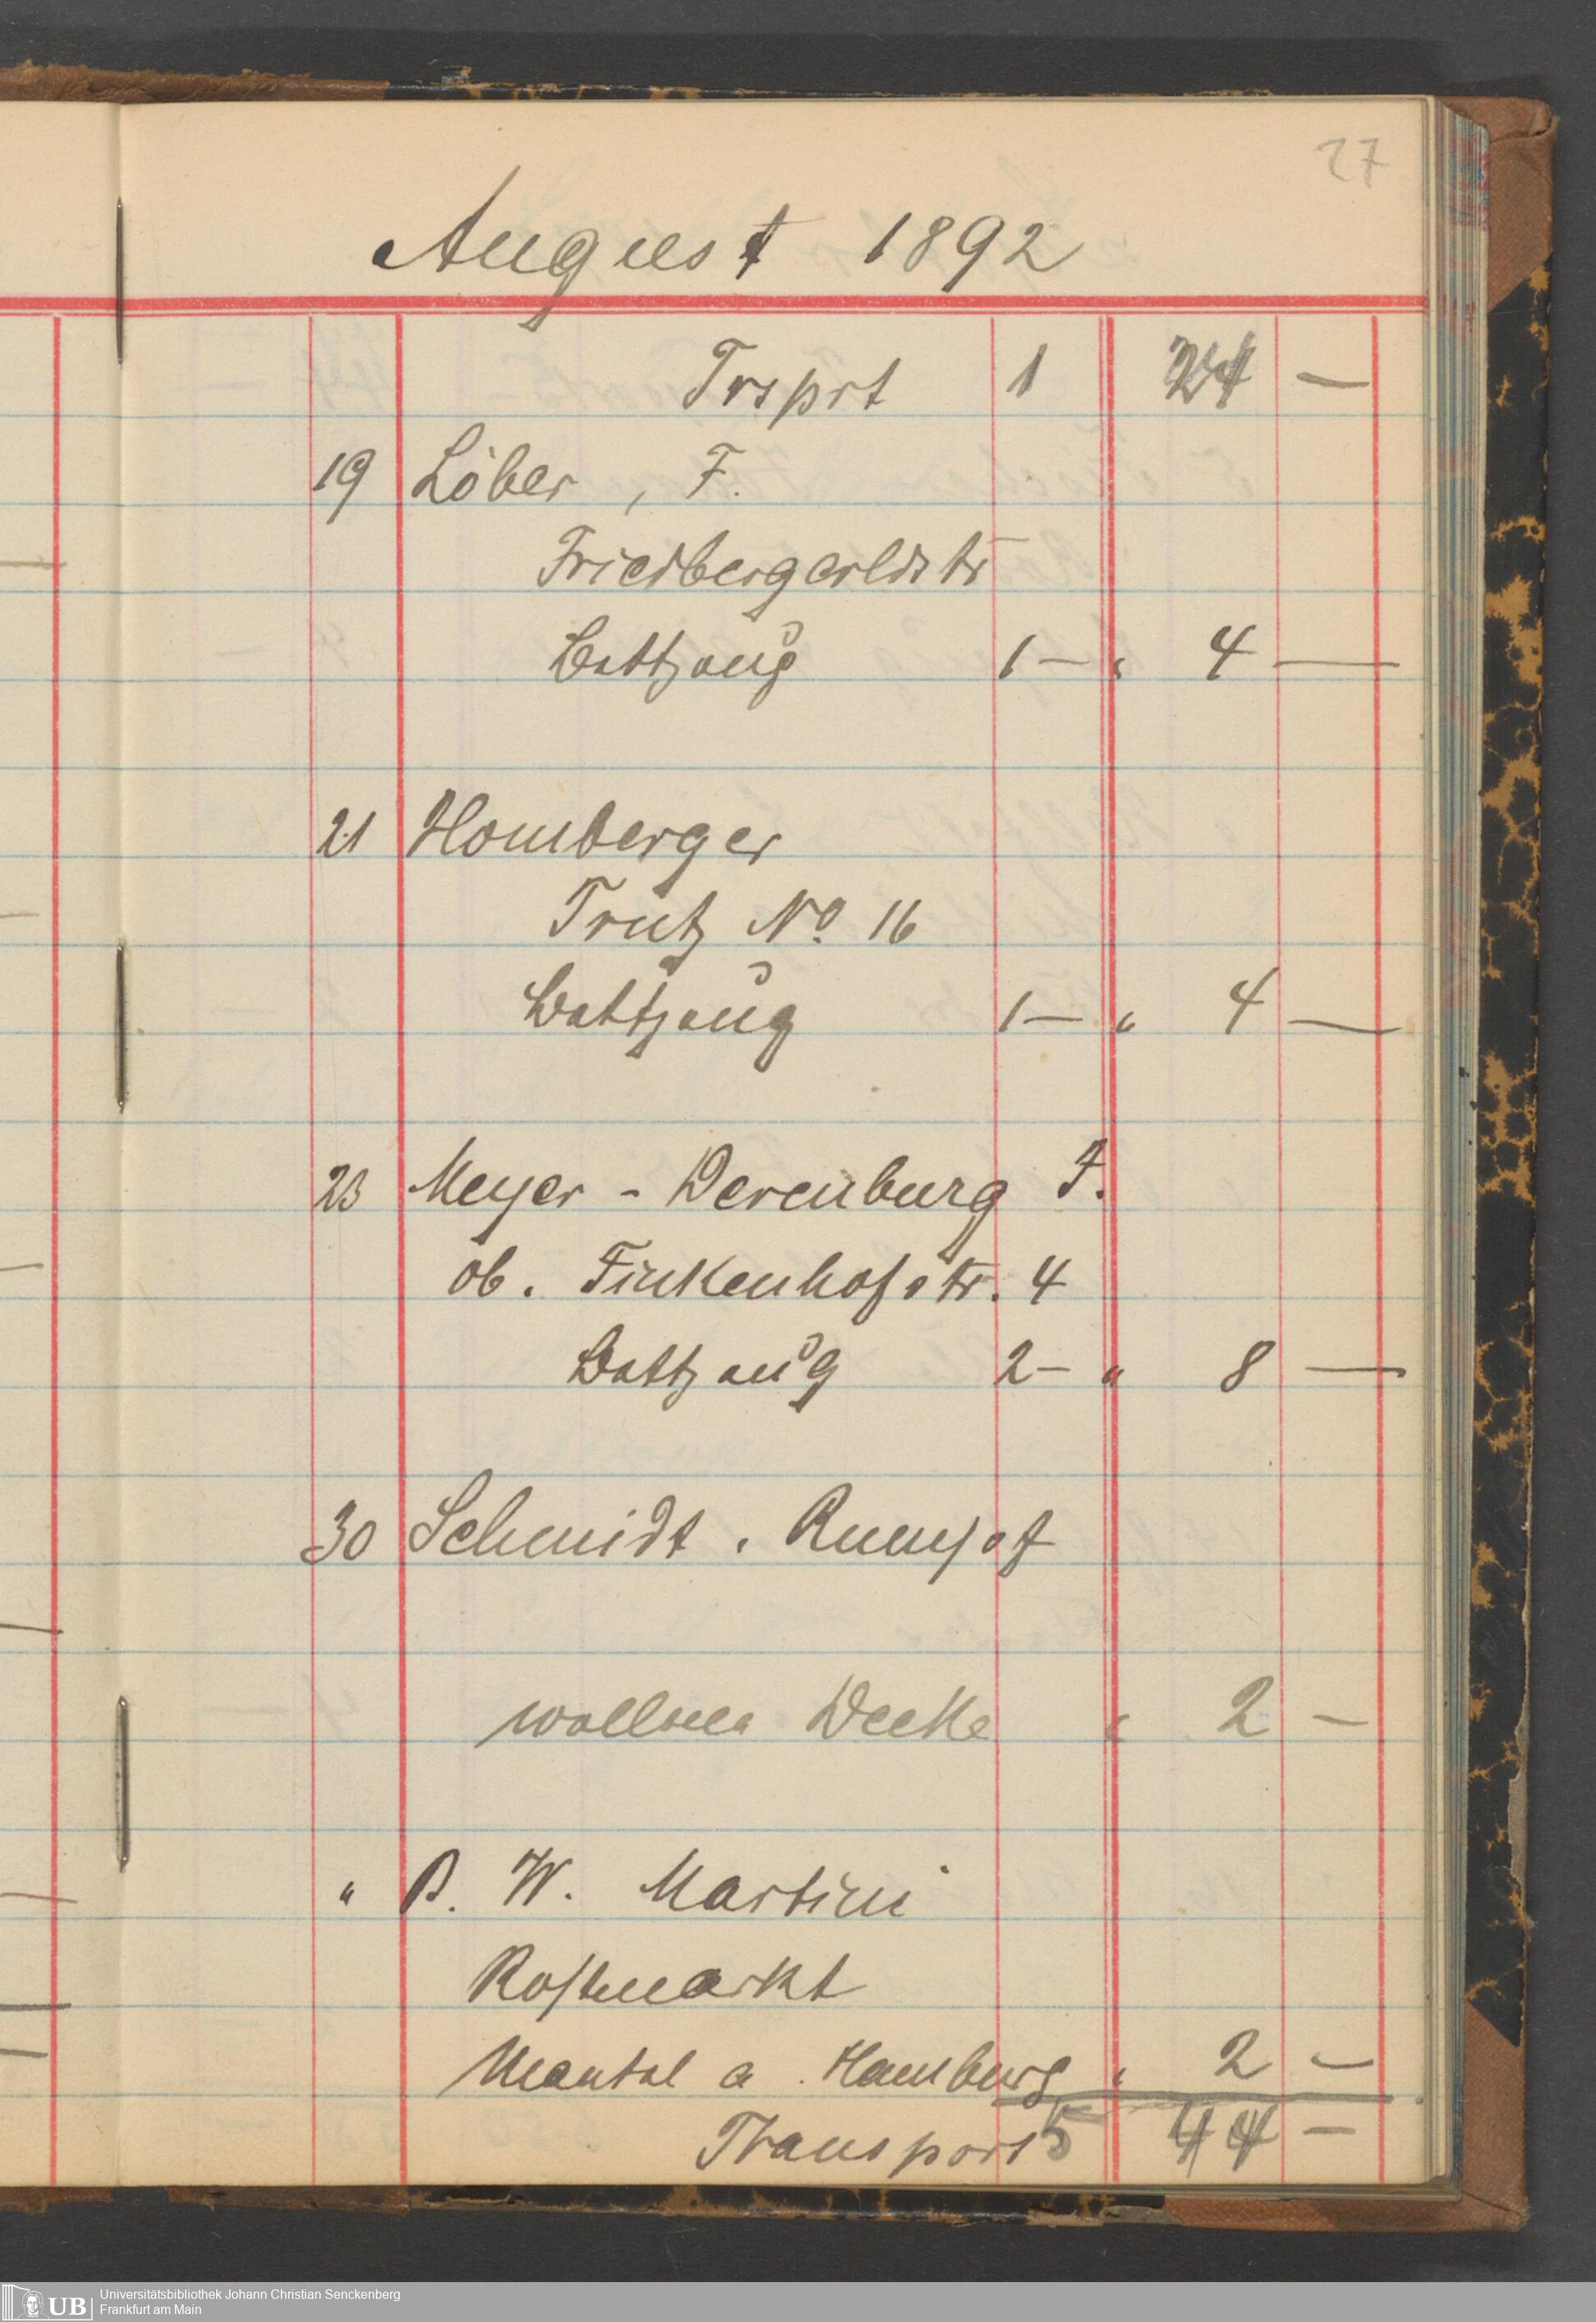 27
August 1892
Trsprt 1 24 —
19 Löber, F.
Friedbergerldstr
Bettzeug 1 — " 4 —
21 Homberger
Trutz No. 16
Bettzeug 1 — " 4 —
23 Meyer - Derenburg F.
ob. Finkenhofstr. 4
Bettzeug 2 - " 8 —
30 Schmidt. Rumpf
wollene Decke " 2 —
" B. W. Martini
Roßmarkt
Mantel a. Hamburg " 2 —
Transport 5 44 —
UB Universitätsbibliothek Johann Christian Senckenberg
Frankfurt am Main